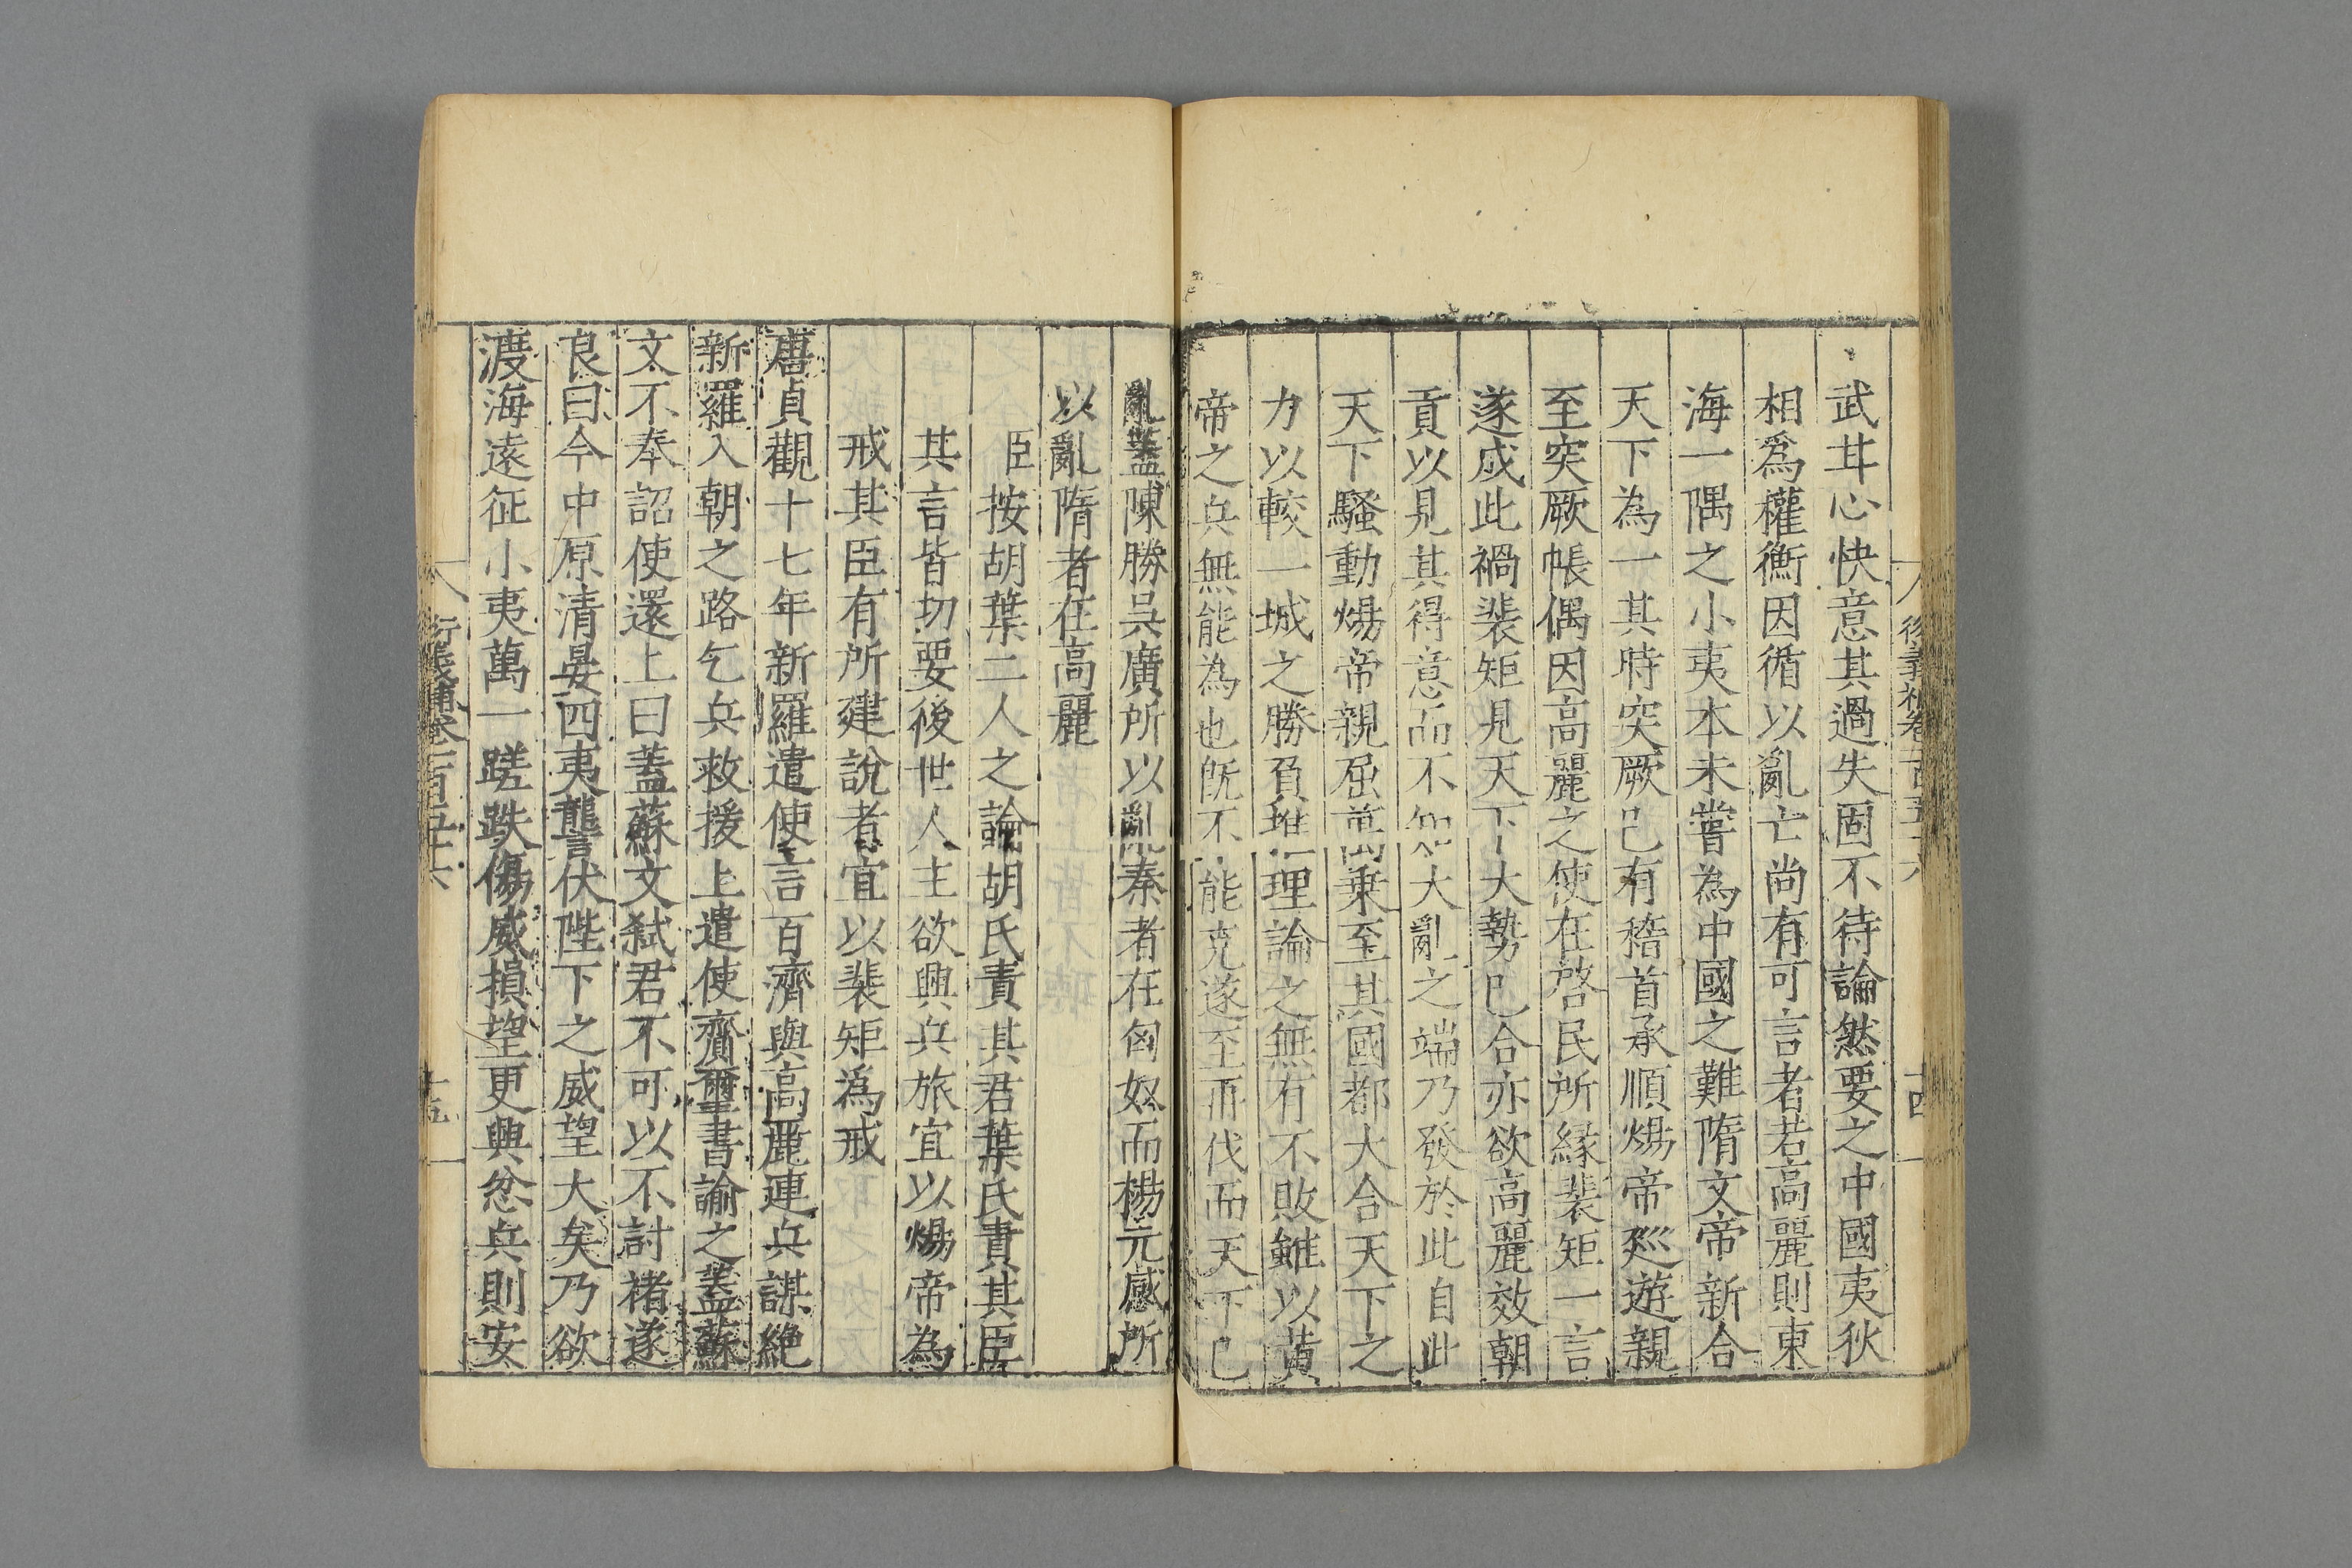 武甘心快意其過失固不待論然要之中國夷狄
相爲權衡因循以亂亡尚有可言者若高麗則東
海一隅之小夷本未嘗為中國之難隋文帝新合
天下為一其時突厥已有稽首承順煬帝廵遊親
至突厥帳偶因高麗之使在啓民所緣裴矩一言
遂成此禍裴矩見天下大勢已合亦欲高麗效朝
貢以見其得意而不知大亂之端乃發於此自此
天下騷動煬帝親屈萬乗至其國都大合天下之
力以較一城之勝負推理論之無有不敗雖以黄
帝之兵無能為也旣不能克遂至再伐而天下已
亂葢陳勝吳廣所以亂秦者在匈奴而楊元感所
以亂隋者在高麗
臣按胡葉二人之論胡氏責其君葉氏責其臣
其言皆切要後世人主欲興兵旅宜以煬帝為
戒其臣有所建說者宜以裴矩爲戒
唐貞觀十七年新羅遣使言百濟與高麗連兵謀絶
新羅入朝之路乞兵救援上遣使齎璽書諭之葢蘇
文不奉詔使還上曰蓋蘇文弒君不可以不討褚遂
良曰今中原清晏四夷讋伏陛下之威望大矣乃欲
渡海遠征小夷萬一蹉跌傷威損望更興忿兵則安
衍義補卷一百五十六
十五